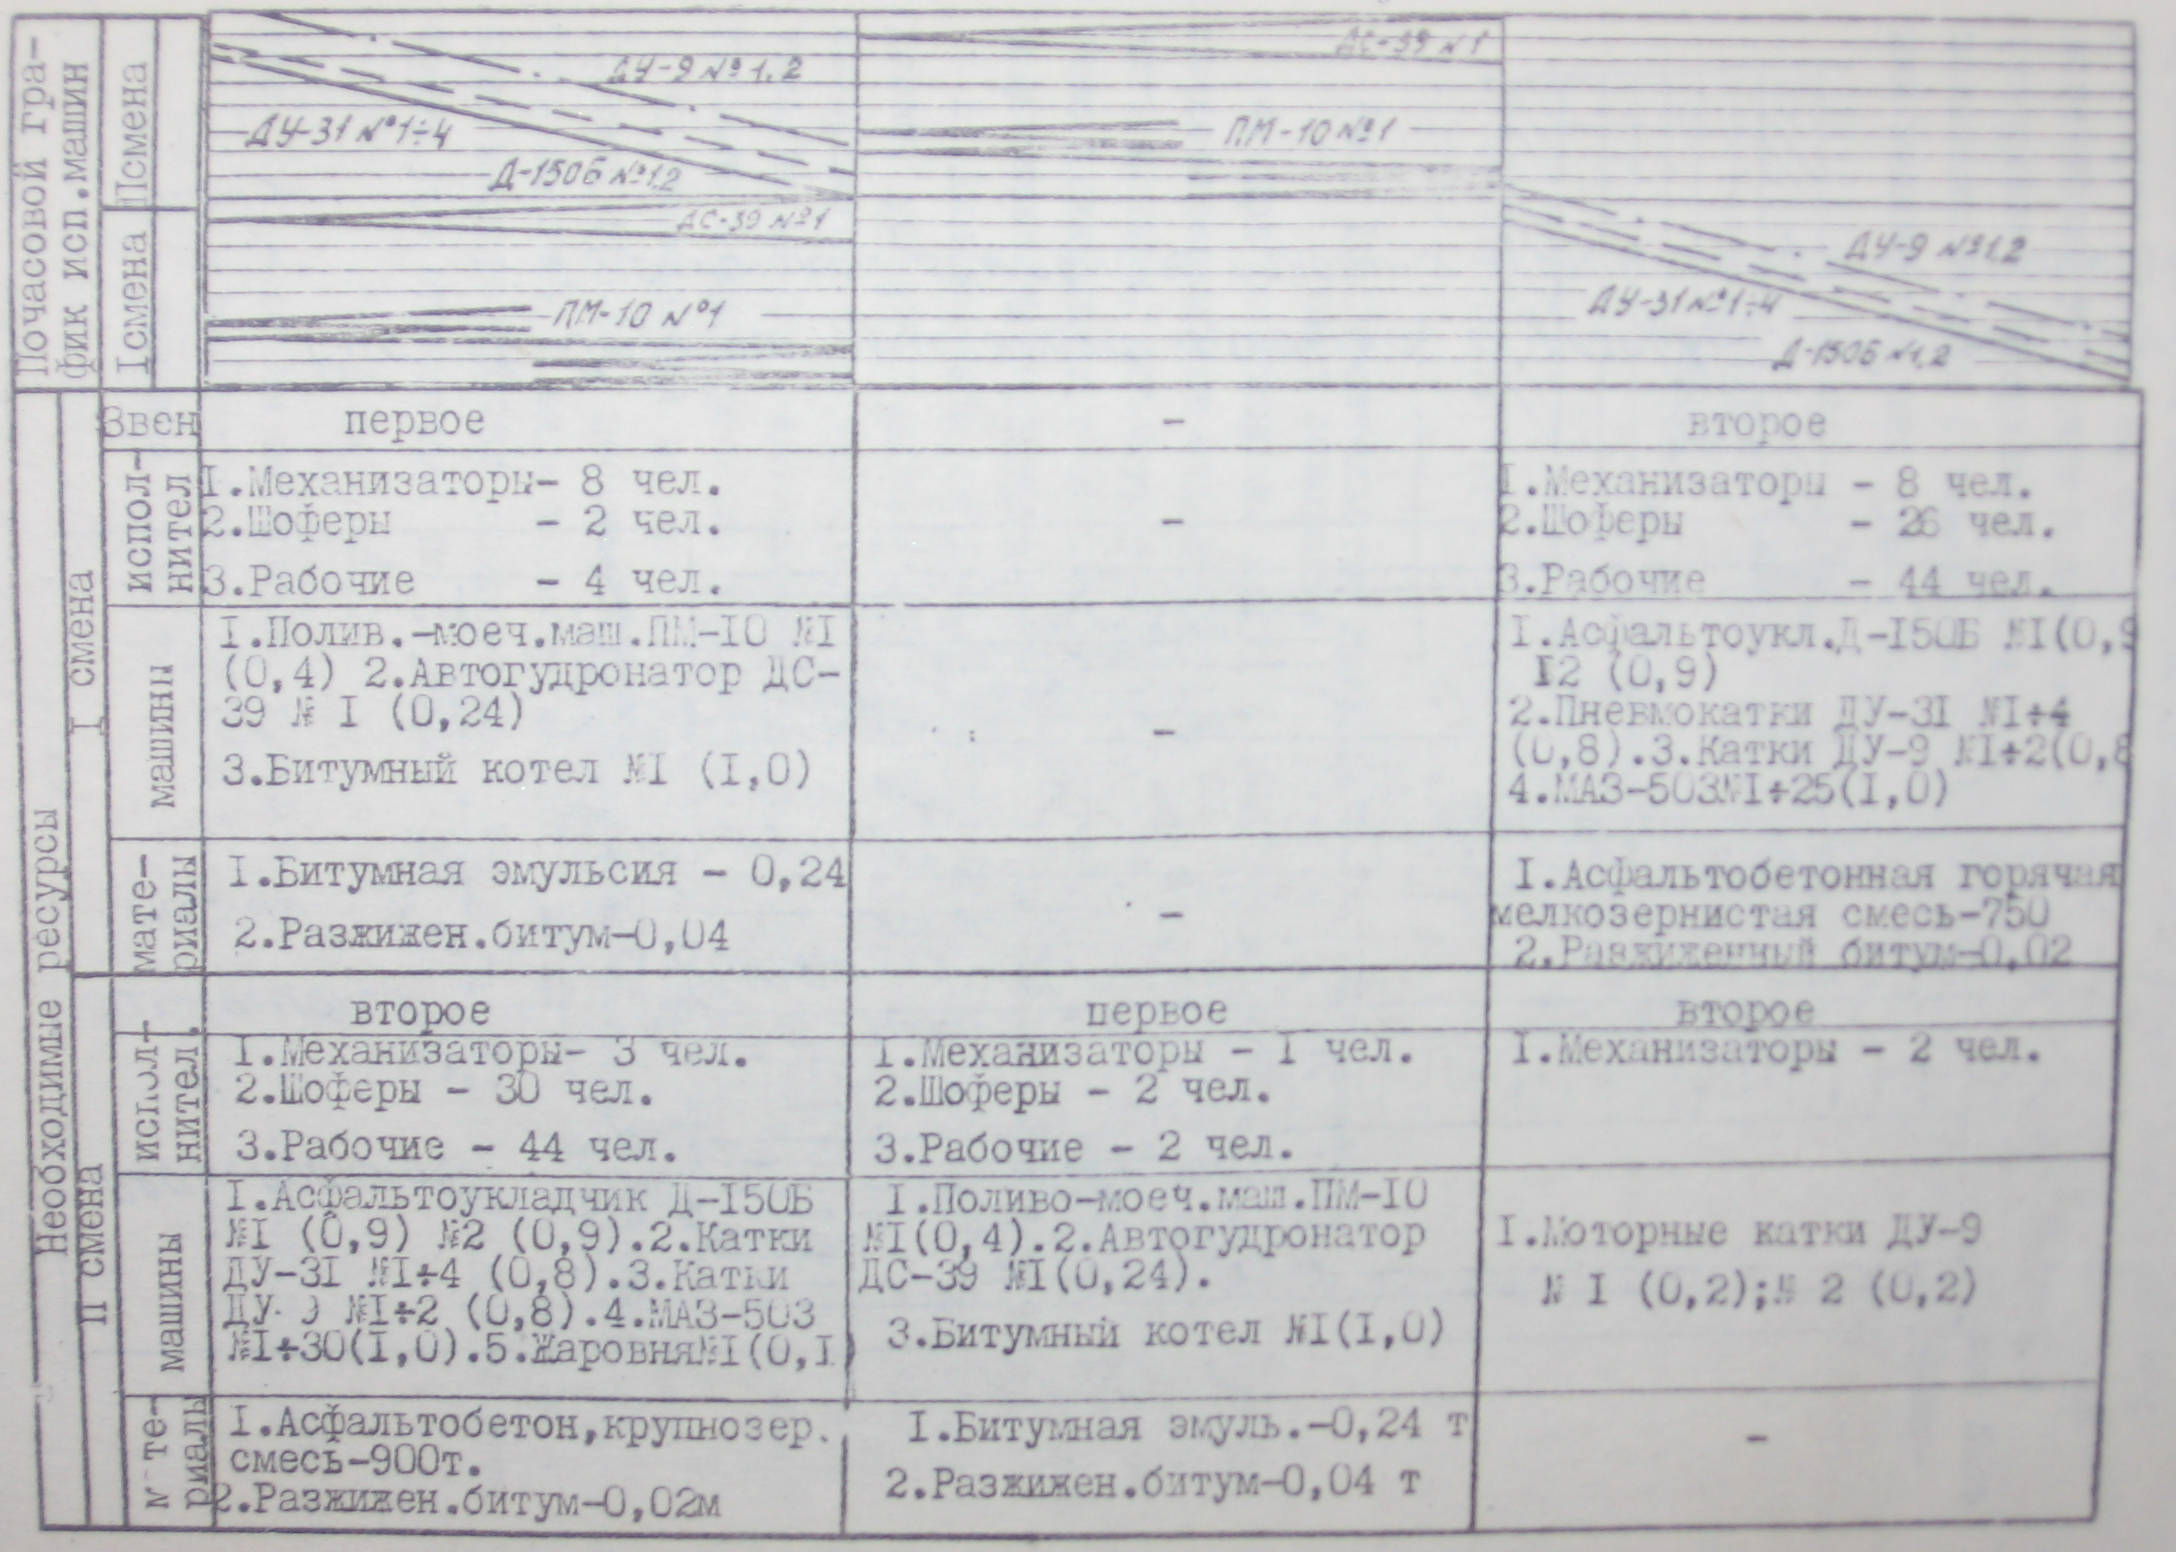 Почасовой гра-
фик исп.машин
IIсмена
Iсмена
ДУ-9 №1.2
ДУ-31 №1÷4
Д-150Б №1.2
ДС-39 №1
ПМ-10 №1
ДС-39 №1
ПМ-10 №1
ДУ-9 №1.2
ДУ-31 №1÷4
Д-150Б №1.2
Необходимые ресурсы
I смена
Звен
первое
-
второе
испол-
нител
I.Механизаторы- 8 чел.
2.Шоферы - 2 чел.
3.Рабочие - 4 чел.
-
I.Механизаторы - 8 чел.
2.Шоферы - 26 чел.
3.Рабочие - 44 чел.
машины
I.Полив.-моеч.маш.ПМ-I0 №I
(0,4) 2.Автогудронатор ДС-
39 № I (0,24)
3.Битумный котел №I (I,0)
-
I.Асфальтоукл.Д-I50Б №I(0,9
№2 (0,9)
2.Пневмокатки ДУ-3I №I÷4
(0,8).3.Катки ДУ-9 №I÷2(0,8
4.МАЗ-503№I÷25(I,0)
мате-
риалы
I.Битумная эмульсия - 0,24
2.Разжижен.битум-0,04
-
I.Асфальтобетонная горячая
мелкозернистая смесь-750
2.Разжиженный битум-0,02
II смена
второе
первое
второе
испол-
нител.
I.Механизаторы- 3 чел.
2.Шоферы - 30 чел.
3.Рабочие - 44 чел.
I.Механизаторы - I чел.
2.Шоферы - 2 чел.
3.Рабочие - 2 чел.
I.Механизаторы - 2 чел.
машины
I.Асфальтоукладчик Д-I50Б
№I (0,9) №2 (0,9).2.Катки
ДУ-3I №I÷4 (0,8).3.Катки
ДУ-9 №I÷2 (0,8).4.МАЗ-503
№I÷30(I,0).5.Жаровня№I(0,I)
I.Поливо-моеч.маш.ПМ-I0
№I(0,4).2.Автогудронатор
ДС-39 №I(0,24).
3.Битумный котел №I(I,0)
I.Моторные катки ДУ-9
№ I (0,2);№ 2 (0,2)
мате-
риалы
I.Асфальтобетон,крупнозер.
смесь-900т.
2.Разжижен.битум-0,02м
I.Битумная эмуль.-0,24 т
2.Разжижен.битум-0,04 т
-